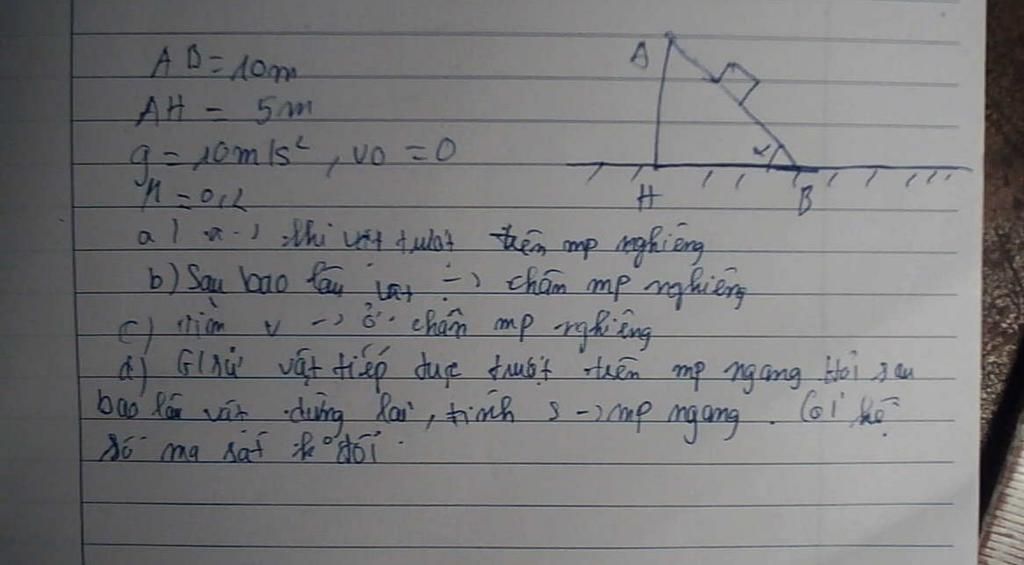 AB = 10m
AH = 5m
g = 10m/s², v0 = 0
μ = 0,2
a) a → khi vật trượt trên mp nghiêng
b) Sau bao lâu vật → chân mp nghiêng
c) tìm v → ở chân mp nghiêng
d) G/sử vật tiếp tục trượt trên mp ngang Hỏi sau
bao lâu vật dừng lại, tính s → mp ngang. Coi hệ
số ma sát ko đổi.
A
α
H
B